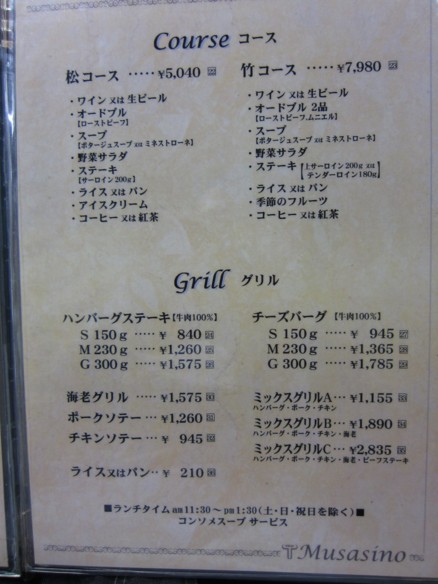 Course コース
松コース ‥‥‥ ¥5,040
・ワイン 又は 生ビール
・オードブル
【ローストビーフ】
・スープ
【ポタージュスープ 又は ミネストローネ】
・野菜サラダ
・ステーキ
【サーロイン200g】
・ライス 又は パン
・アイスクリーム
・コーヒー 又は 紅茶
竹コース ‥‥ ¥7,980
・ワイン 又は 生ビール
・オードブル 2品
【ローストビーフ、ムニエル】
・スープ
【ポタージュスープ 又は ミネストローネ】
・野菜サラダ
・ステーキ【上サーロイン200g 又は
テンダーロイン180g】
・ライス 又は パン
・季節のフルーツ
・コーヒー 又は 紅茶
Grill グリル
ハンバーグステーキ【牛肉100%】
S 150g ‥‥‥ ¥ 840
M 230g ‥‥‥ ¥1,260
G 300g ‥‥‥ ¥1,575
海老グリル ‥‥‥ ¥1,575
ポークソテー ‥‥ ¥1,260
チキンソテー ‥‥ ¥ 945
ライス又はパン‥ ¥ 210
チーズバーグ【牛肉100%】
S 150g ‥‥‥ ¥ 945
M 230g ‥‥‥ ¥1,365
G 300g ‥‥‥ ¥1,785
ミックスグリルA‥‥ ¥1,155
ハンバーグ・ポーク・チキン
ミックスグリルB‥‥ ¥1,890
ハンバーグ・ポーク・チキン・海老
ミックスグリルC‥‥ ¥2,835
ハンバーグ・ポーク・チキン・海老・ビーフステーキ
■ランチタイム am11:30～pm1:30(土・日・祝日を除く)■
コンソメスープ サービス
Musasino